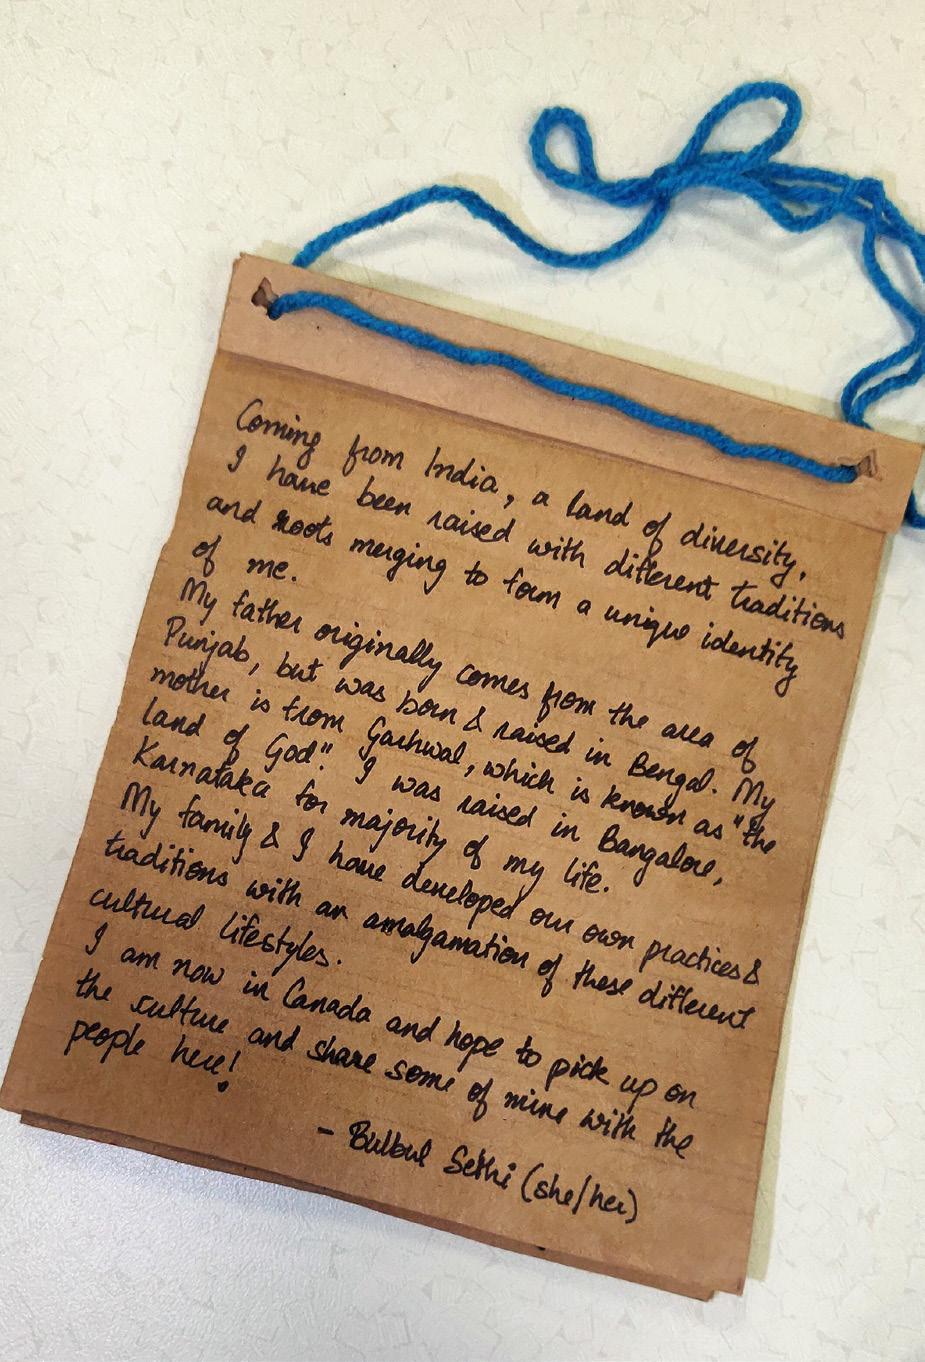 Coming from India, a land of diversity,
I have been raised with different traditions
and roots merging to form a unique identity
of me.
My father originally comes from the area of
Punjab, but was born & raised in Bengal. My
mother is from Garhwal, which is known as "the
land of God". I was raised in Bangalore,
Karnataka for majority of my life.
My family & I have developed our own practices &
traditions with an amalgamation of these different
cultural lifestyles.
I am now in Canada and hope to pick up on
the culture and share some of mine with the
people here!
- Bulbul Sethi (she/her)